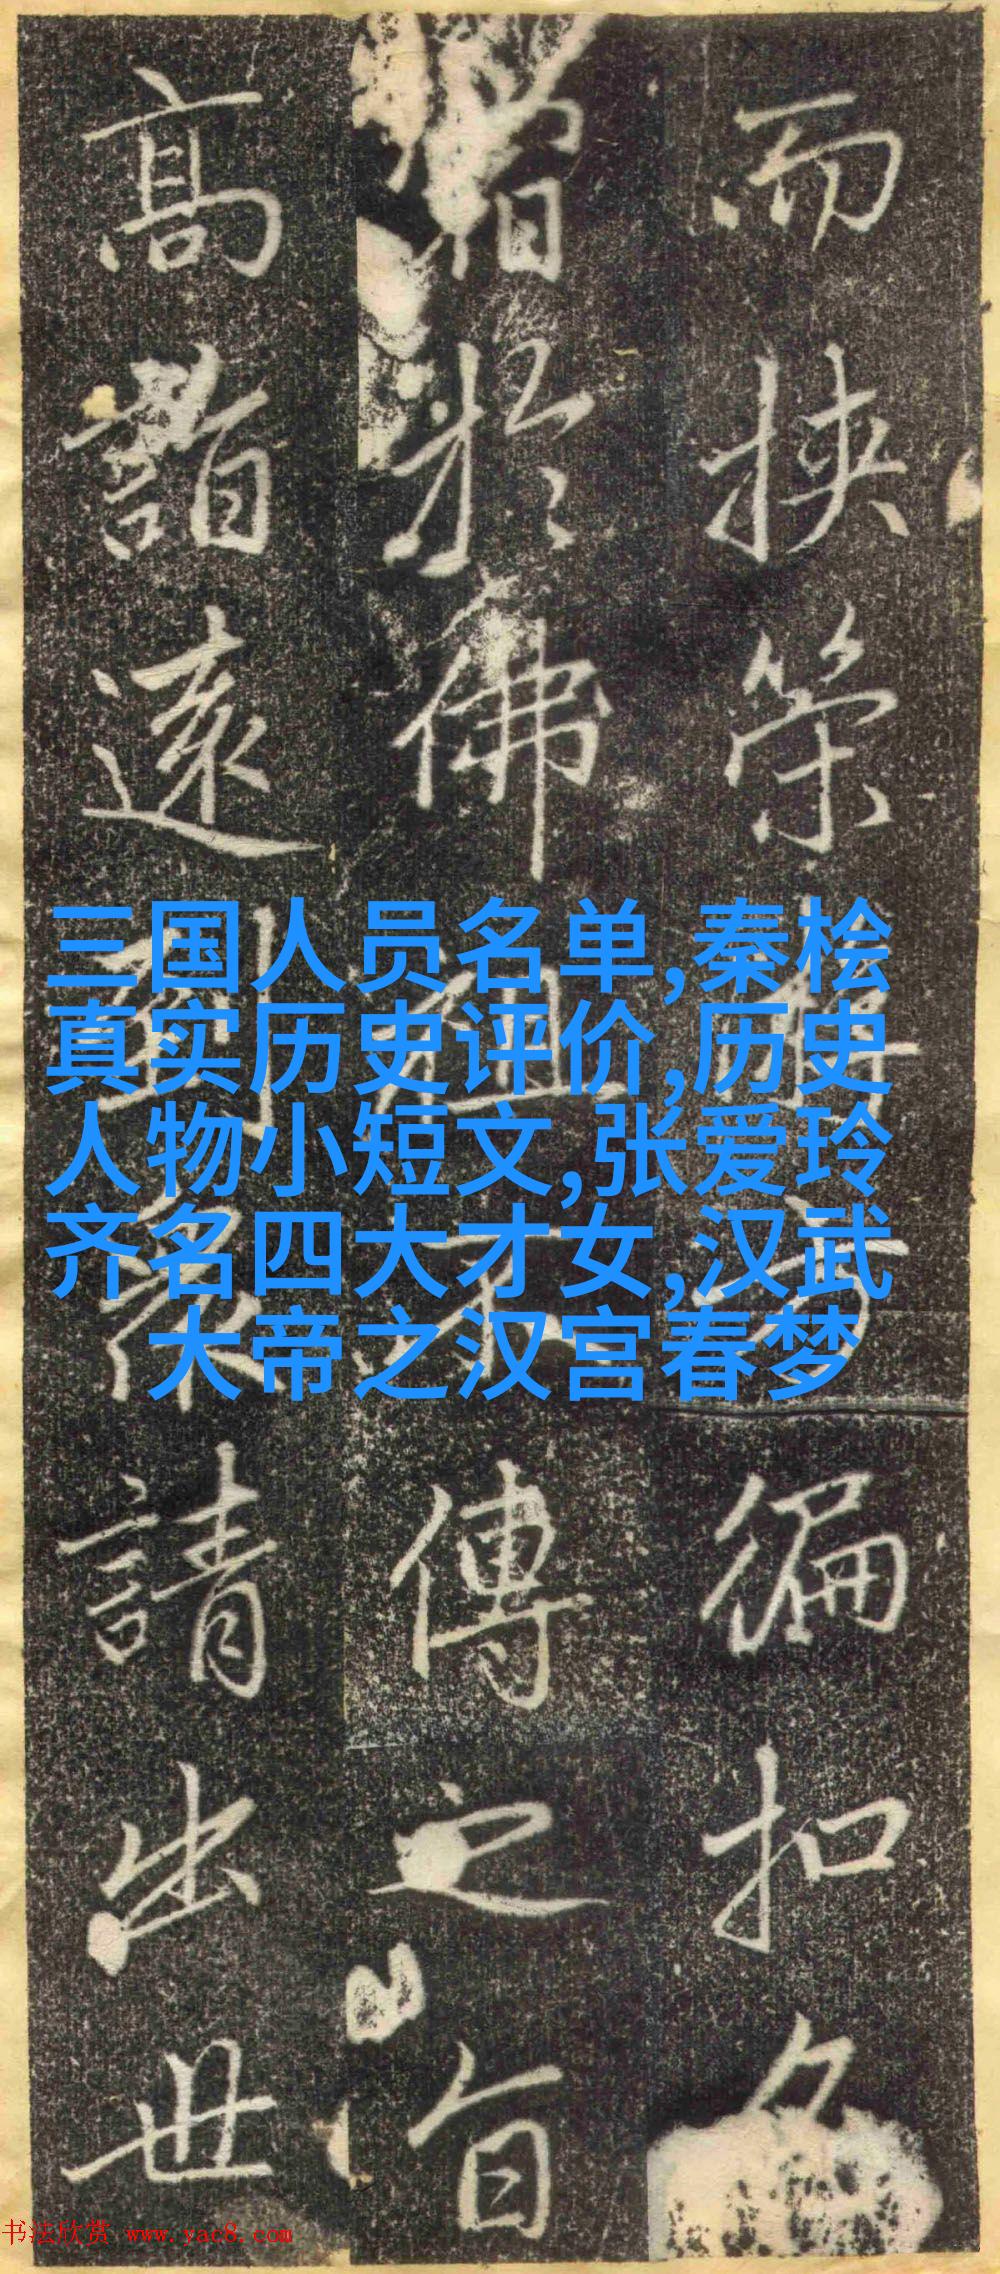 而挾策方徧扣名
於佛祖不傳之旨
高詣遠到衆請出世
三国人员名单,秦桧
真实历史评价,历史
人物小短文,张爱玲
齐名四大才女,汉武
大帝之汉宫春梦
书法欣赏 www.yac8.com